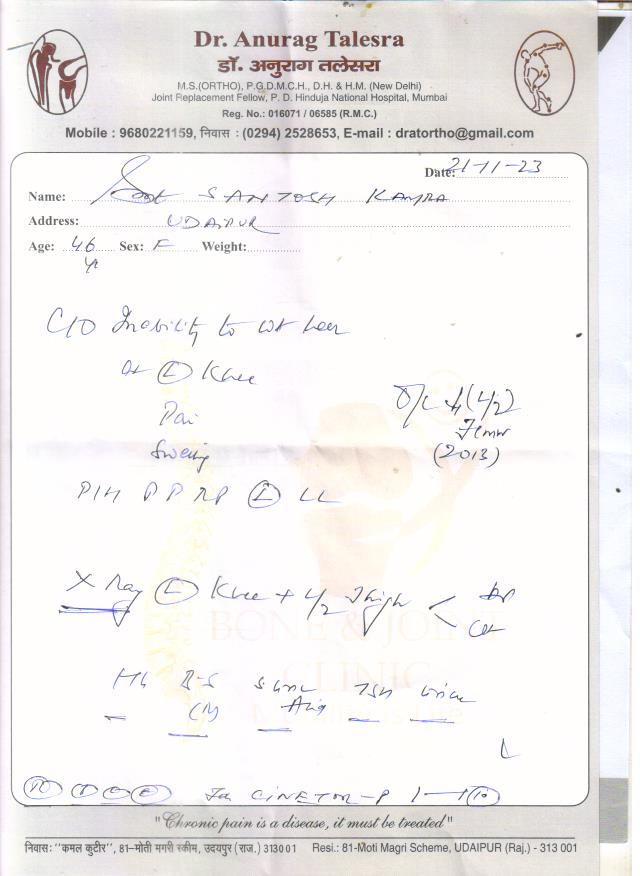 Dr. Anurag Talesra
डॉ. अनुराग तलेसरा
M.S.(ORTHO), P.G.D.M.C.H., D.H. & H.M. (New Delhi)
Joint Replacement Fellow, P. D. Hinduja National Hospital, Mumbai
Reg. No.: 016071 / 06585 (R.M.C.)
Mobile : 9680221159, निवास : (0294) 2528653, E-mail : dratortho@gmail.com
Date: 21-11-23
Name: SANTOSH
Address: UDAIPUR
Age: 46 yr Sex: F Weight:
C/O Inability to wt bear
L Knee
Pain
Swelling
O/C # (L/2)
Femur
(2013)
P/H P P RP L LL
X Ray L Knee + L/2 Thigh
BONE & JOINT
CLINIC
Hb B-S S Uric TSH Urine
Acid
Ta CINETOR-P 1—1 (10)
"Chronic pain is a disease, it must be treated"
निवास: "कमल कुटीर", 81-मोती मगरी स्कीम, उदयपुर (राज.) 313001 Resi.: 81-Moti Magri Scheme, UDAIPUR (Raj.) - 313 001